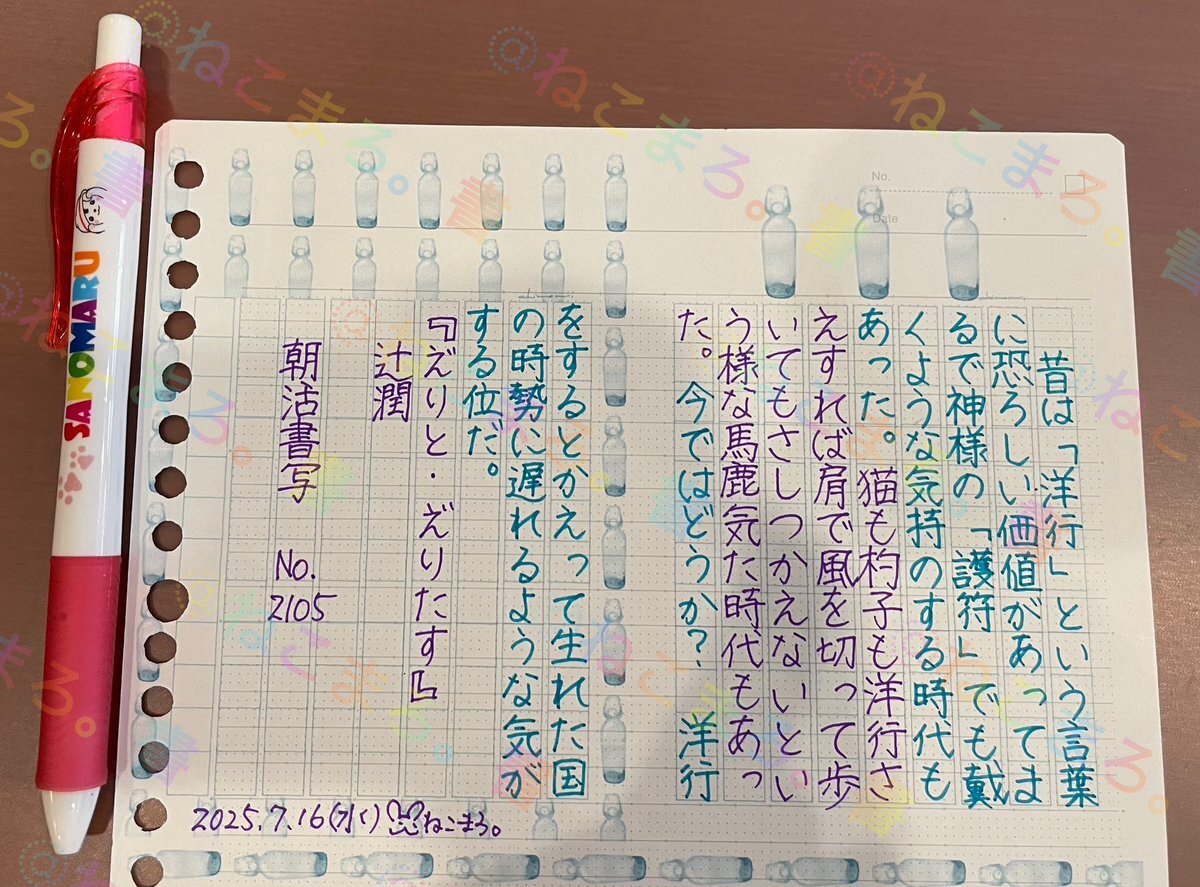 昔は「洋行」という言葉
に恐ろしい価値があってま
るで神様の「護符」でも戴
くような気持のする時代も
あった。猫も杓子も洋行さ
えすれば肩で風を切って歩
いてもさしつかえないとい
う様な馬鹿気た時代もあっ
た。今ではどうか？ 洋行
をするとかえって生れた国
の時勢に遅れるような気が
する位だ。
『えりと・えりたす』
辻潤
朝活書写 No.2105
2025.7.16(水)ねこまろ。
No.
Date
SANOMARU
@ねこまろ。書